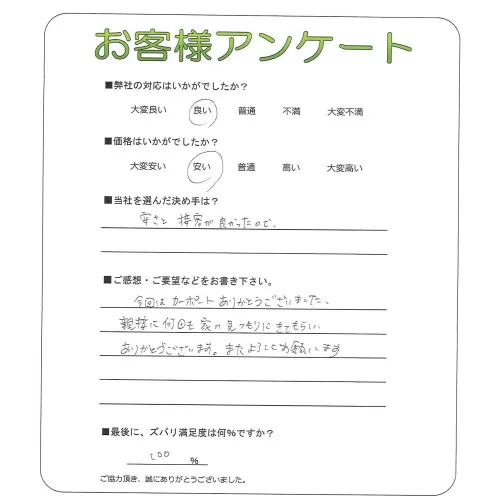 お客様アンケート
■弊社の対応はいかがでしたか?
大変良い 良い 普通 不満 大変不満
■価格はいかがでしたか?
大変安い 安い 普通 高い 大変高い
■当社を選んだ決め手は?
安さと 接客が良かったので、
■ご感想・ご要望などをお書き下さい。
今回は カーポートありがとうございました、
親切に何回も 家に見つもりにきてもらい
ありがとうございます。またよろしくお願いします
■最後に、ズバリ満足度は何%ですか?
100 %
ご協力頂き、誠にありがとうございました。